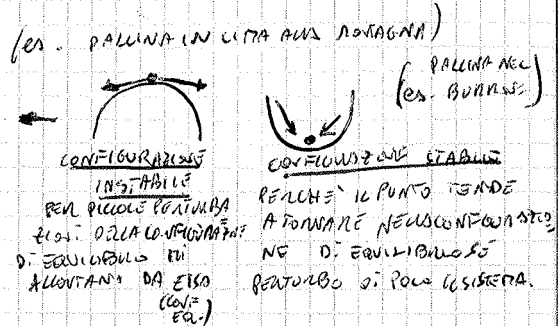 (es. PALLINA IN CIMA ALLA MONTAGNA)
(es. PALLINA NEL
BURRONE)
CONFIGURAZIONE
INSTABILE
PER PICCOLE PERTURBA
ZIONI DELLA CONFIGURAZIONE
DI EQUILIBRIO MI
ALLONTANO DA ESSA
(CONF.
EQ.)
CONFIGURAZIONE STABILE
PERCHÈ IL PUNTO TENDE
A TORNARE NELLA CONFIGURAZIO
NE DI EQUILIBRIO SE
PERTURBO DI POCO IL SISTEMA.